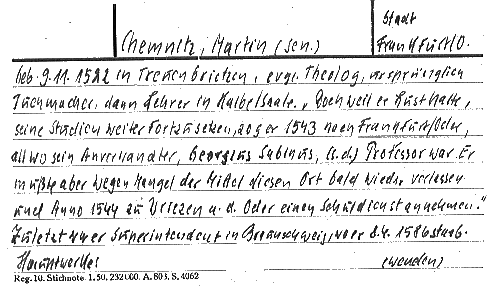 Chemnitz, Martin (sen.)
Stadt
Frankfurt/O.
geb. 9.11.1522 in Treuenbrietzen, evgl. Theolog, ursprünglich
Tuchmacher, dann Lehrer in Kalbe/Saale. „Doch weil er Lust hatte,
seine Studien weiter fortzusetzen, zog er 1543 nach Frankfurt/Oder,
allwo sein Anverwandter, Georgius Sabinus, (s.d.) Professor war. Er
mußte aber wegen Mangel der Mittel diesen Ort bald wieder verlassen
und Anno 1544 zu Wriezen a. d. Oder einen Schuldienst annehmen."
Zuletzt war er Superintendent in Braunschweig, wo er 8.4.1586 starb.
Hauptwerke:
(wenden)
Reg. 10. Stichnote. 1. 50. 232000. A. 803. S. 4062